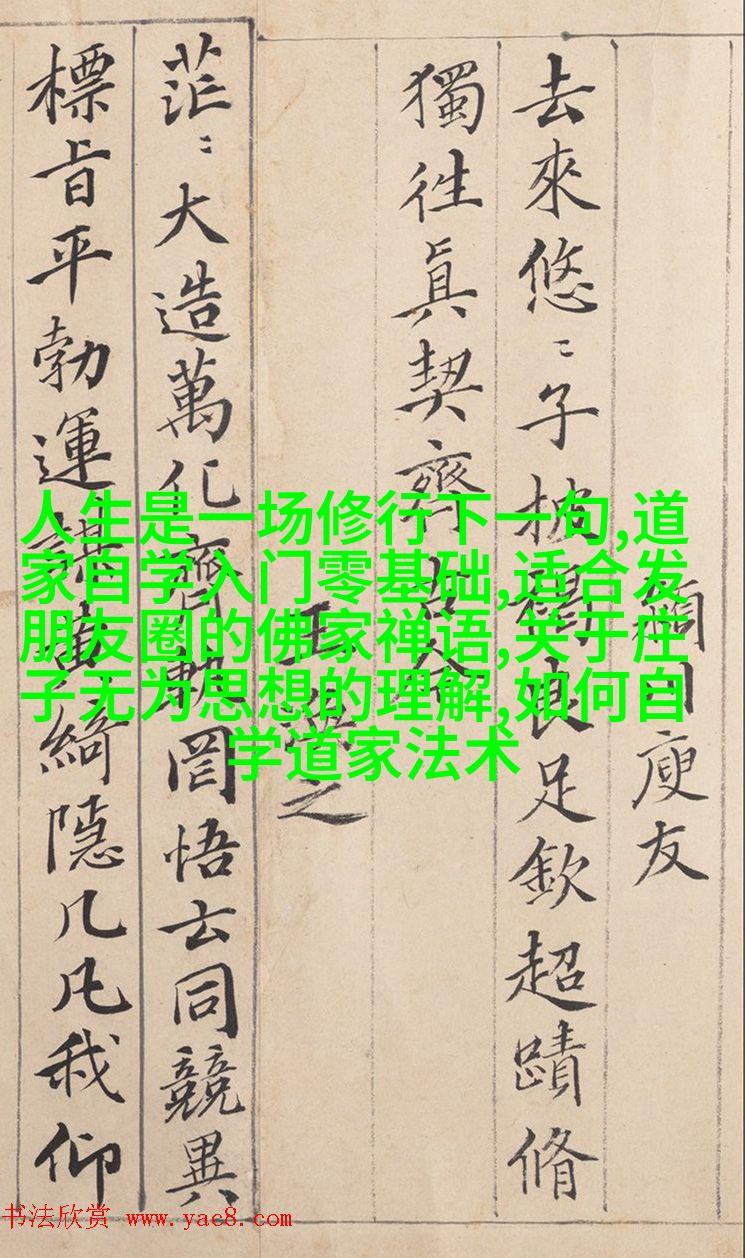 川庾友
去來悠〻子披褐良足欽超蹟脩
獨徃眞契齊古今
王渙之
茫〻大造萬化齊軌罔悟玄同競異
標旨平勃運謀黃綺隱几凡我仰
人生是一场修行下一句,道
家自学入门零基础,适合发
朋友圈的佛家禅语,关于庄
子无为思想的理解,如何自
学道家法术
书法欣赏 www.yac8.com